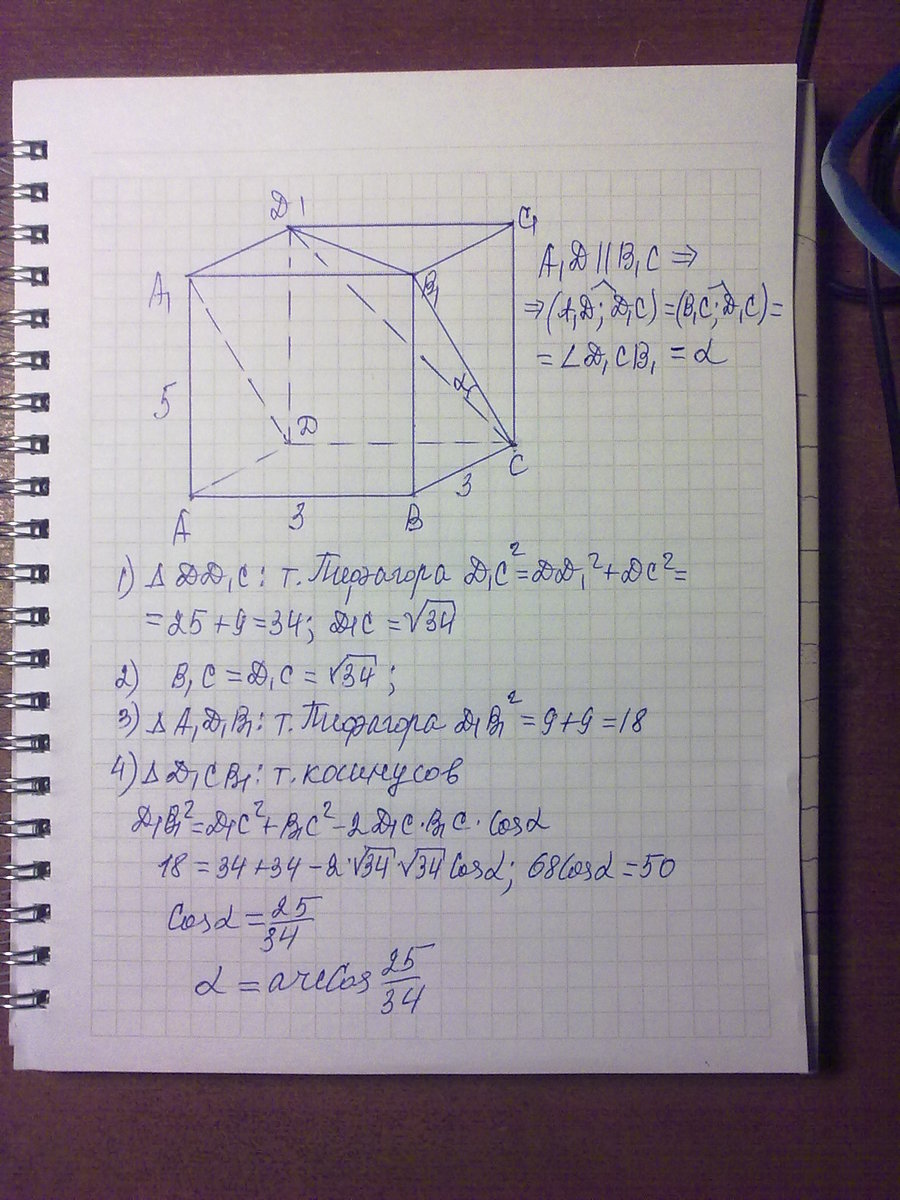 D1
C₁
A₁
B₁
A₁D || B₁C ⇒
⇒ (A₁D; D₁C) = (B₁C; D₁C) =
= ∠D₁CB₁ = α
5
α
D
C
3
A
3
B
1) Δ DD₁C: т. Пифагора D₁C² = DD₁² + DC² =
= 25 + 9 = 34; D₁C = √34
2) B₁C = D₁C = √34;
3) Δ A₁D₁B₁: т. Пифагора D₁B₁² = 9 + 9 = 18
4) Δ D₁CB₁: т. косинусов
D₁B₁² = D₁C² + B₁C² - 2 D₁C · B₁C · Cosα
18 = 34 + 34 - 2·√34·√34 Cosα; 68Cosα = 50
Cosα = 25/34
α = arcCos 25/34